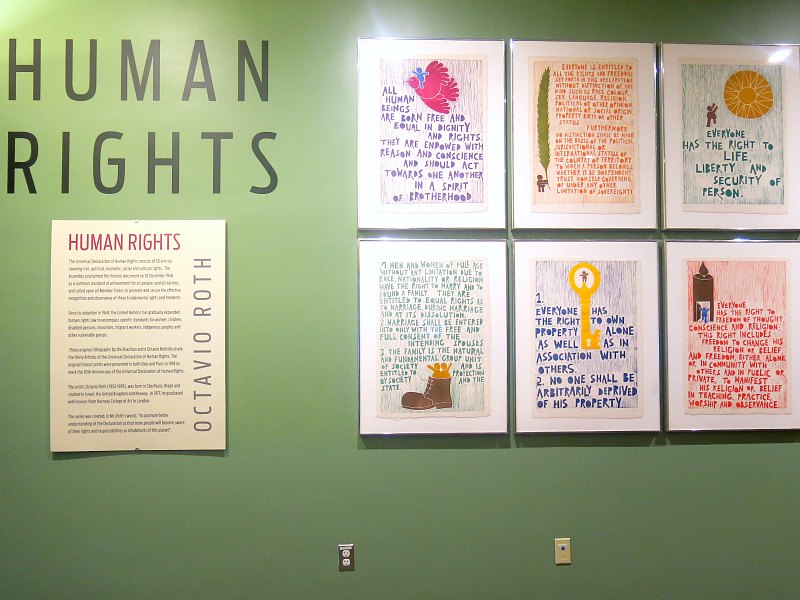 HUMAN
RIGHTS
HUMAN RIGHTS
The Universal Declaration of Human Rights consists of 30 articles
covering civil, political, economic, social and cultural rights. The
Assembly proclaimed this historic document on 10 December 1948
as a common standard of achievement for all peoples and all nations,
and called upon all Member States to promote and secure the effective
recognition and observance of these fundamental rights and freedoms.
Since its adoption in 1948, the United Nations has gradually expanded
human rights law to encompass specific standards for women, children,
disabled persons, minorities, migrant workers, indigenous peoples and
other vulnerable groups.
These original lithographs by the Brazilian artist Octavio Roth illustrate
the thirty Articles of the Universal Declaration of Human Rights. The
original linocut prints were presented in both Oslo and Paris in 1988 to
mark the 30th Anniversary of the Universal Declaration of Human Rights.
The artist, Octavio Roth (1952-1993), was born in São Paulo, Brazil and
studied in Israel, the United Kingdom and Norway. In 1977, he graduated
with honors from Hornsey College of Art in London.
The series was created, in Mr. Roth's words, "to promote better
understanding of the Declaration so that more people will become aware
of their rights and responsibilities as inhabitants of this planet".
OCTAVIO ROTH
ALL
HUMAN
BEINGS
ARE BORN FREE AND
EQUAL IN DIGNITY
AND RIGHTS.
THEY ARE ENDOWED WITH
REASON AND CONSCIENCE
AND SHOULD ACT
TOWARDS ONE ANOTHER
IN A SPIRIT
OF BROTHERHOOD
EVERYONE IS ENTITLED TO
ALL THE RIGHTS AND FREEDOMS
SET FORTH IN THIS DECLARATION
WITHOUT DISTINCTION OF ANY
KIND, SUCH AS RACE, COLOUR,
SEX, LANGUAGE, RELIGION,
POLITICAL OR OTHER OPINION,
NATIONAL OR SOCIAL ORIGIN,
PROPERTY, BIRTH OR OTHER
STATUS.
FURTHERMORE,
NO DISTINCTION SHALL BE MADE
ON THE BASIS OF THE POLITICAL,
JURISDICTIONAL OR
INTERNATIONAL STATUS OF
THE COUNTRY OR TERRITORY
TO WHICH A PERSON BELONGS,
WHETHER IT BE INDEPENDENT,
TRUST, NON-SELF-GOVERNING
OR UNDER ANY OTHER
LIMITATION OF SOVEREIGNTY.
EVERYONE
HAS THE RIGHT TO
LIFE,
LIBERTY AND
SECURITY OF
PERSON.
1. MEN AND WOMEN OF FULL AGE
WITHOUT ANY LIMITATION DUE TO
RACE, NATIONALITY OR RELIGION
HAVE THE RIGHT TO MARRY AND TO
FOUND A FAMILY. THEY ARE
ENTITLED TO EQUAL RIGHTS AS
TO MARRIAGE, DURING MARRIAGE
AND AT ITS DISSOLUTION.
2. MARRIAGE SHALL BE ENTERED
INTO ONLY WITH THE FREE AND
FULL CONSENT OF THE
INTENDING SPOUSES
3. THE FAMILY IS THE NATURAL
AND FUNDAMENTAL GROUP UNIT
OF SOCIETY AND IS
ENTITLED TO PROTECTION
BY SOCIETY AND THE
STATE.
1.
EVERYONE HAS
THE RIGHT TO OWN
PROPERTY ALONE
AS WELL AS IN
ASSOCIATION WITH
OTHERS.
2. NO ONE SHALL BE
ARBITRARILY DEPRIVED
OF HIS PROPERTY.
EVERYONE
HAS THE RIGHT TO
FREEDOM OF THOUGHT,
CONSCIENCE AND RELIGION.
THIS RIGHT INCLUDES
FREEDOM TO CHANGE HIS
RELIGION OR BELIEF,
AND FREEDOM, EITHER ALONE
OR IN COMMUNITY WITH
OTHERS AND IN PUBLIC OR
PRIVATE, TO MANIFEST
HIS RELIGION OR BELIEF
IN TEACHING, PRACTICE,
WORSHIP AND OBSERVANCE.